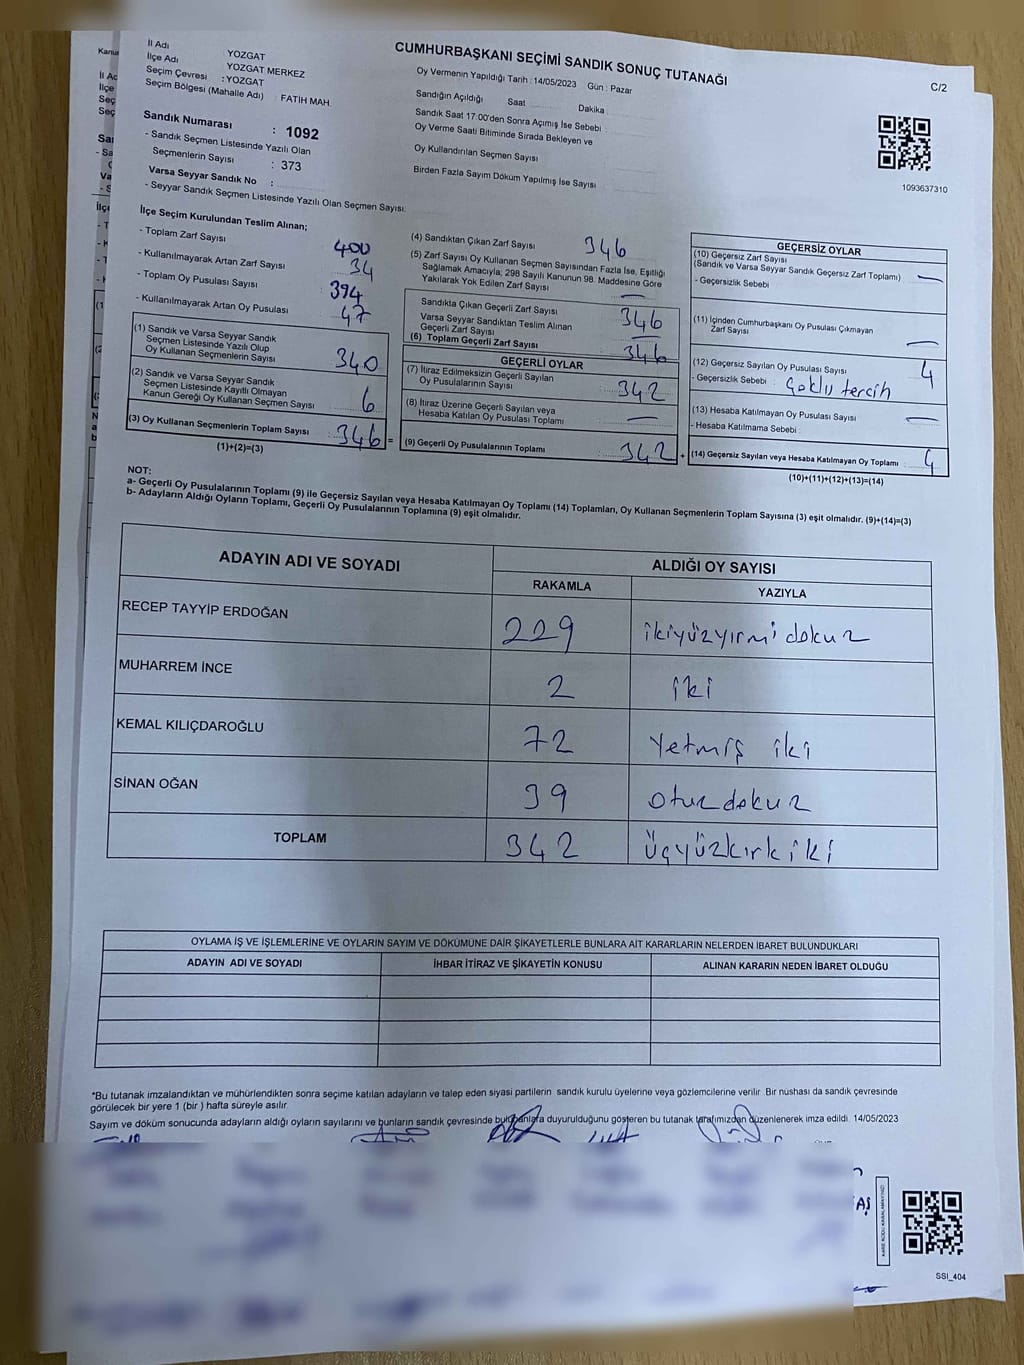 CUMHURBAŞKANI SEÇİMİ SANDIK SONUÇ TUTANAĞI
C/2
İl Adı YOZGAT
İlçe Adı YOZGAT MERKEZ
Seçim Çevresi : YOZGAT
Seçim Bölgesi (Mahalle Adı) : FATİH MAH.
Sandık Numarası : 1092
- Sandık Seçmen Listesinde Yazılı Olan
Seçmenlerin Sayısı : 373
Varsa Seyyar Sandık No :
- Seyyar Sandık Seçmen Listesinde Yazılı Olan Seçmen Sayısı:
Oy Vermenin Yapıldığı Tarih : 14/05/2023 Gün : Pazar
Sandığın Açıldığı Saat Dakika
Sandık Saat 17:00'den Sonra Açımış İse Sebebi
Oy Verme Saati Bitiminde Sırada Bekleyen ve
Oy Kullandırılan Seçmen Sayısı
Birden Fazla Sayım Döküm Yapılmış İse Sayısı
1093637310
İlçe Seçim Kurulundan Teslim Alınan;
- Toplam Zarf Sayısı 400
- Kullanılmayarak Artan Zarf Sayısı 34
- Toplam Oy Pusulası Sayısı 394
- Kullanılmayarak Artan Oy Pusulası 47
(1) Sandık ve Varsa Seyyar Sandık
Seçmen Listesinde Yazılı Olup
Oy Kullanan Seçmenlerin Sayısı 340
(2) Sandık ve Varsa Seyyar Sandık
Seçmen Listesinde Kayıtlı Olmayan
Kanun Gereği Oy Kullanan Seçmen Sayısı 6
(3) Oy Kullanan Seçmenlerin Toplam Sayısı 346 =
(1)+(2)=(3)
(4) Sandıktan Çıkan Zarf Sayısı 346
(5) Zarf Sayısı Oy Kullanan Seçmen Sayısından Fazla İse, Eşitliği
Sağlamak Amacıyla; 298 Sayılı Kanunun 98. Maddesine Göre
Yakılarak Yok Edilen Zarf Sayısı —
Sandıkta Çıkan Geçerli Zarf Sayısı 346
Varsa Seyyar Sandıktan Teslim Alınan
Geçerli Zarf Sayısı —
(6) Toplam Geçerli Zarf Sayısı 346
GEÇERLİ OYLAR
(7) İtiraz Edilmeksizin Geçerli Sayılan
Oy Pusulalarının Sayısı 342
(8) İtiraz Üzerine Geçerli Sayılan veya
Hesaba Katılan Oy Pusulası Toplamı —
(9) Geçerli Oy Pusulalarının Toplamı 342 +
GEÇERSİZ OYLAR
(10) Geçersiz Zarf Sayısı
(Sandık ve Varsa Seyyar Sandık Geçersiz Zarf Toplamı) —
- Geçersizlik Sebebi
(11) İçinden Cumhurbaşkanı Oy Pusulası Çıkmayan
Zarf Sayısı —
(12) Geçersiz Sayılan Oy Pusulası Sayısı 4
- Geçersizlik Sebebi : Çoklu tercih
(13) Hesaba Katılmayan Oy Pusulası Sayısı —
- Hesaba Katılmama Sebebi
(14) Geçersiz Sayılan veya Hesaba Katılmayan Oy Toplamı 4
(10)+(11)+(12)+(13)=(14)
NOT:
a- Geçerli Oy Pusulalarının Toplamı (9) ile Geçersiz Sayılan veya Hesaba Katılmayan Oy Toplamı (14) Toplamları, Oy Kullanan Seçmenlerin Toplam Sayısına (3) eşit olmalıdır. (9)+(14)=(3)
b- Adayların Aldığı Oyların Toplamı, Geçerli Oy Pusulalarının Toplamına (9) eşit olmalıdır.
ADAYIN ADI VE SOYADI ALDIĞI OY SAYISI
RAKAMLA YAZIYLA
RECEP TAYYİP ERDOĞAN 229 ikiyüzyirmi dokuz
MUHARREM İNCE 2 iki
KEMAL KILIÇDAROĞLU 72 Yetmiş iki
SİNAN OĞAN 39 otuz dokuz
TOPLAM 342 Üçyüzkırk iki
OYLAMA İŞ VE İŞLEMLERİNE VE OYLARIN SAYIM VE DÖKÜMÜNE DAİR ŞİKAYETLERLE BUNLARA AİT KARARLARIN NELERDEN İBARET BULUNDUKLARI
ADAYIN ADI VE SOYADI İHBAR İTİRAZ VE ŞİKAYETİN KONUSU ALINAN KARARIN NEDEN İBARET OLDUĞU
*Bu tutanak imzalandıktan ve mühürlendikten sonra seçime katılan adayların ve talep eden siyasi partilerin sandık kurulu üyelerine veya gözlemcilerine verilir. Bir nüshası da sandık çevresinde
görülecek bir yere 1 (bir ) hafta süreyle asılır.
Sayım ve döküm sonucunda adayların aldığı oyların sayılarını ve bunların sandık çevresinde bulunanlara duyurulduğunu gösteren bu tutanak tarafımızdan düzenlenerek imza edildi. 14/05/2023
AŞ
SSI_404